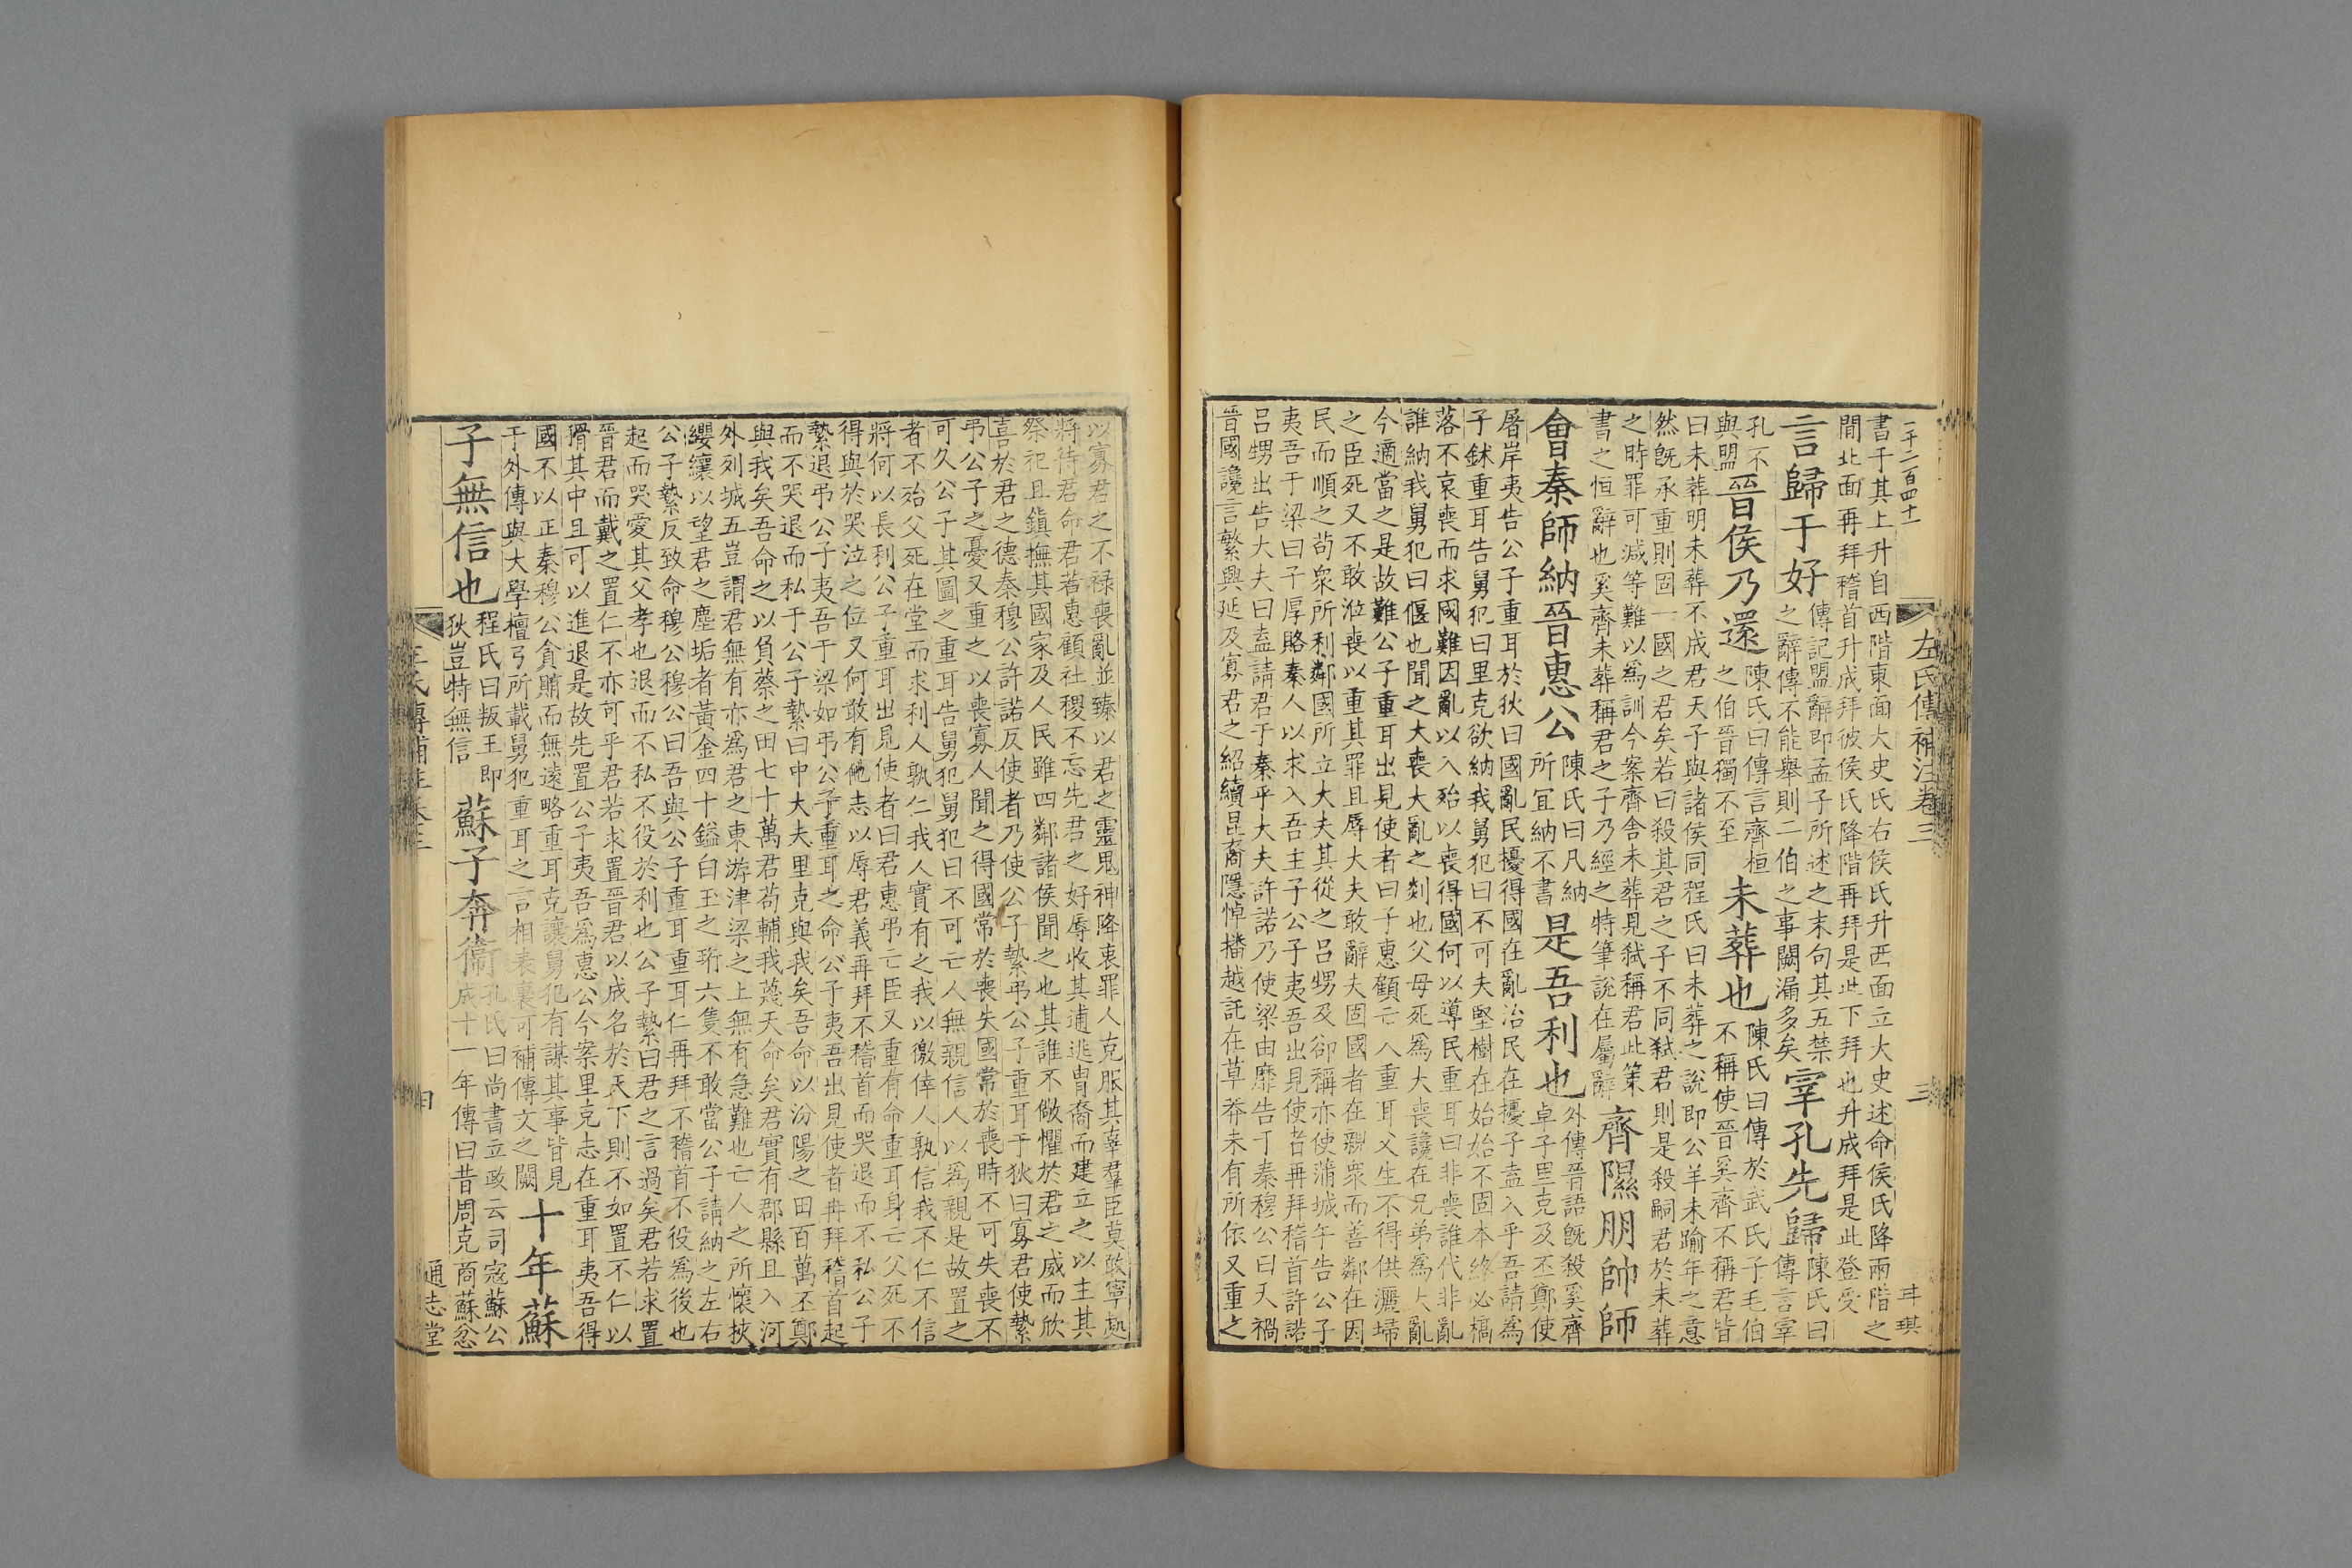 一千二百四十一
左氏傳補注卷三
三
玕琪
書于其上升自西階東面大史氏右侯氏升西面立大史述命侯氏降兩階之
間北面再拜稽首升成拜彼侯氏降階再拜是此下拜也升成拜是此登受
言歸于好
傳記盟辭即孟子所述之末句其五禁
之辭傳不能舉則二伯之事闕漏多矣
宰孔先歸
陳氏曰
傳言宰
孔不
與盟
晉侯乃還
陳氏曰傳言齊桓
之伯晉獨不至
未葬也
陳氏曰傳於武氏子毛伯
不稱使晉奚齊不稱君皆
曰未葬明未葬不成君天子與諸侯同程氏曰未葬之說即公羊未踰年之意
然旣承重則固一國之君矣若曰殺其君之子不同弑君則是殺嗣君於未葬
之時罪可減等難以爲訓今案齊舍未葬見弑稱君此策
書之恒辭也奚齊未葬稱君之子乃經之特筆說在屬辭
齊隰朋帥師
會秦師納晉惠公
陳氏曰凡納
所冝納不書
是吾利也
外傳晉語旣殺奚齊
卓子里克及丕鄭使
屠岸夷告公子重耳於狄曰國亂民擾得國在亂治民在擾子盍入乎吾請爲
子鉥重耳告舅犯曰里克欲納我舅犯曰不可夫堅樹在始始不固本終必槁
落不哀喪而求國難因亂以入殆以喪得國何以導民重耳曰非喪誰代非亂
誰納我舅犯曰偃也聞之大喪大亂之剡也父母死爲大喪讒在兄弟爲大亂
今適當之是故難公子重耳出見使者曰子惠顧亡人重耳父生不得供灑埽
之臣死又不敢涖喪以重其罪且辱大夫敢辭夫固國者在親衆而善鄰在因
民而順之茍衆所利鄰國所立大夫其從之呂甥及郤稱亦使蒲城午告公子
夷吾于梁曰子厚賂秦人以求入吾主子公子夷吾出見使者再拜稽首許諾
呂甥出告大夫曰盍請君于秦乎大夫許諾乃使梁由靡告于秦穆公曰天禍
晉國讒言繁興延及寡君之紹續昆裔隱悼播越託在草莽未有所依又重之
以寡君之不祿喪亂並臻以君之靈鬼神降衷罪人克服其辜羣臣莫敢寧處
將待君命君若惠顧社稷不忘先君之好辱收其逋逃胄裔而建立之以主其
祭祀且鎮撫其國家及人民雖四鄰諸侯聞之也其誰不儆懼於君之威而欣
喜於君之德秦穆公許諾反使者乃使公子縶弔公子重耳于狄曰寡君使縶
弔公子之憂又重之以喪寡人聞之得國常於喪失國常於喪時不可失喪不
可久公子其圖之重耳告舅犯舅犯曰不可亡人無親信人以爲親是故置之
者不殆父死在堂而求利人孰仁我人實有之我以徼倖人孰信我不仁不信
將何以長利公子重耳出見使者曰君惠弔亡臣又重有命重耳身亡父死不
得與於哭泣之位又何敢有他志以辱君義再拜不稽首而哭退而不私公子
縶退弔公子夷吾于梁如弔公子重耳之命公子夷吾出見使者再拜稽首起
而不哭退而私于公子縶曰中大夫里克與我矣吾命以汾陽之田百萬丕鄭
與我矣吾命之以負蔡之田七十萬君茍輔我蔑天命矣君實有郡縣且入河
外列城五豈謂君無有亦爲君之東游津梁之上無有急難也亡人之所懷挾
纓纕以望君之塵垢者黃金四十鎰白玉之珩六隻不敢當公子請納之左右
公子縶反致命穆公穆公曰吾與公子重耳重耳仁再拜不稽首不役爲後也
起而哭愛其父孝也退而不私不役於利也公子縶曰君之言過矣君若求置
晉君而戴之置仁不亦可乎君若求置晉君以成名於天下則不如置不仁以
猾其中且可以進退是故先置公子夷吾爲惠公今案里克志在重耳夷吾得
國不以正秦穆公貪賄而無遠略重耳克讓舅犯有謀其事皆見
于外傳與大學檀弓所載舅犯重耳之言相表裏可補傳文之闕
十年蘇
子無信也
程氏曰叛王即
狄豈特無信
蘇子奔衞
孔氏曰尚書立政云司寇蘇公
成十一年傳曰昔周克商蘇忿
通志堂